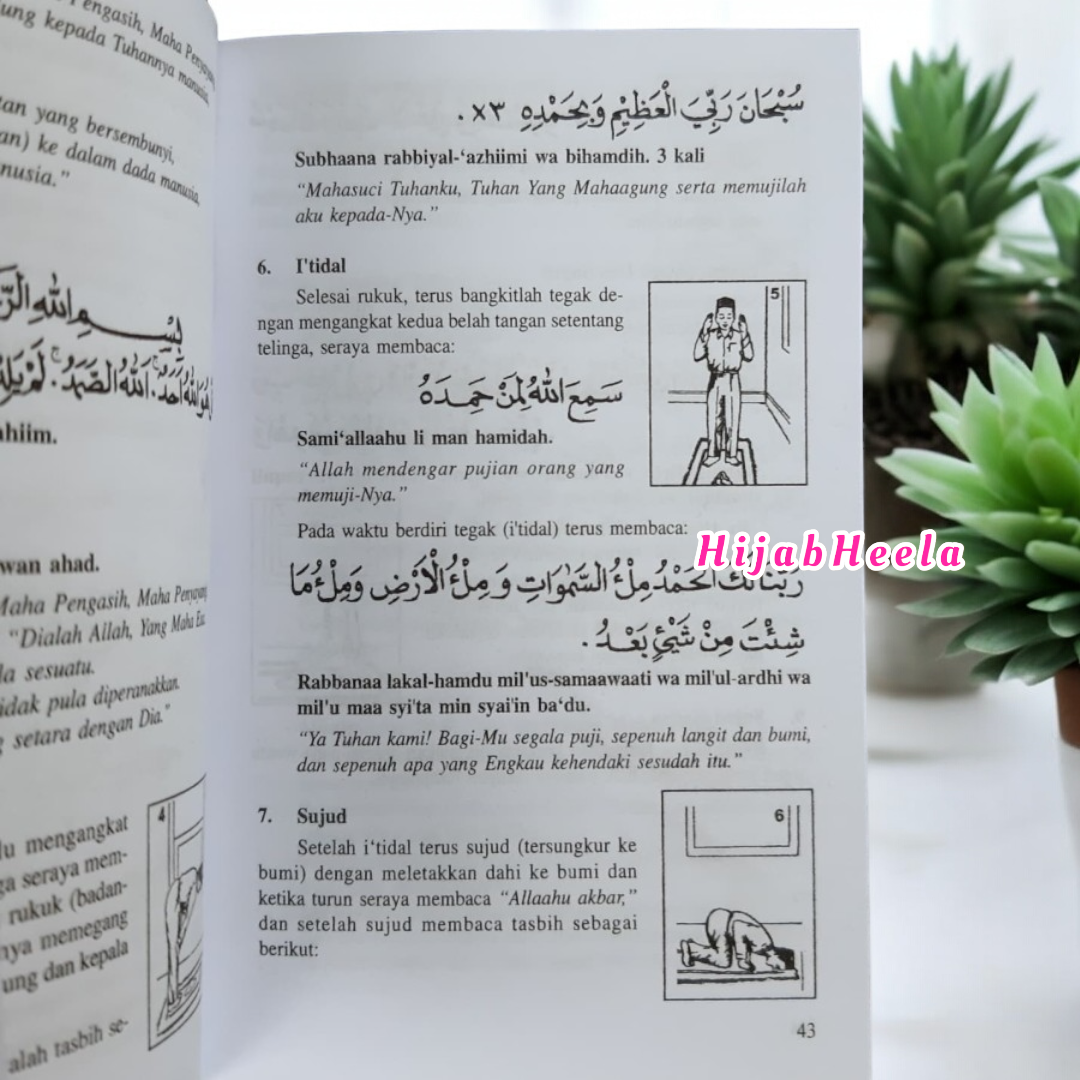 Pengasih, Maha Penyayang
ung kepada Tuhannya manusia,
tan yang bersembunyi,
an) ke dalam dada manusia,
nusia."
بِسْمِ اللهِ الرَّ
هُوَ اللهُ اَحَدٌ. اَللهُ الصَّمَدُ. لَمْ يَلِدْ
ahiim.
wan ahad.
Maha Pengasih, Maha Penyayang
"Dialah Allah, Yang Maha Esa.
la sesuatu.
tidak pula diperanakkan.
g setara dengan Dia."
lu mengangkat
ga seraya mem-
rukuk (badan-
nya memegang
ung dan kepala
alah tasbih se-
4
سُبْحَانَ رَبِّيَ الْعَظِيْمِ وَبِحَمْدِهِ ×٣ .
Subhaana rabbiyal-‘azhiimi wa bihamdih. 3 kali
“Mahasuci Tuhanku, Tuhan Yang Mahaagung serta memujilah
aku kepada-Nya.”
6. I'tidal
Selesai rukuk, terus bangkitlah tegak de-
ngan mengangkat kedua belah tangan setentang
telinga, seraya membaca:
5
سَمِعَ اللهُ لِمَنْ حَمِدَهُ
Sami‘allaahu li man hamidah.
“Allah mendengar pujian orang yang
memuji-Nya.”
Pada waktu berdiri tegak (i'tidal) terus membaca:
HijabHeela
رَبَّنَا لَكَ الْحَمْدُ مِلْءُ السَّمٰوَاتِ وَ مِلْءُ الْاَرْضِ وَمِلْءُ مَا
شِئْتَ مِنْ شَيْئٍ بَعْدُ .
Rabbanaa lakal-hamdu mil'us-samaawaati wa mil'ul-ardhi wa
mil'u maa syi'ta min syai'in ba‘du.
“Ya Tuhan kami! Bagi-Mu segala puji, sepenuh langit dan bumi,
dan sepenuh apa yang Engkau kehendaki sesudah itu.”
7. Sujud
Setelah i‘tidal terus sujud (tersungkur ke
bumi) dengan meletakkan dahi ke bumi dan
ketika turun seraya membaca “Allaahu akbar,”
dan setelah sujud membaca tasbih sebagai
berikut:
6
43